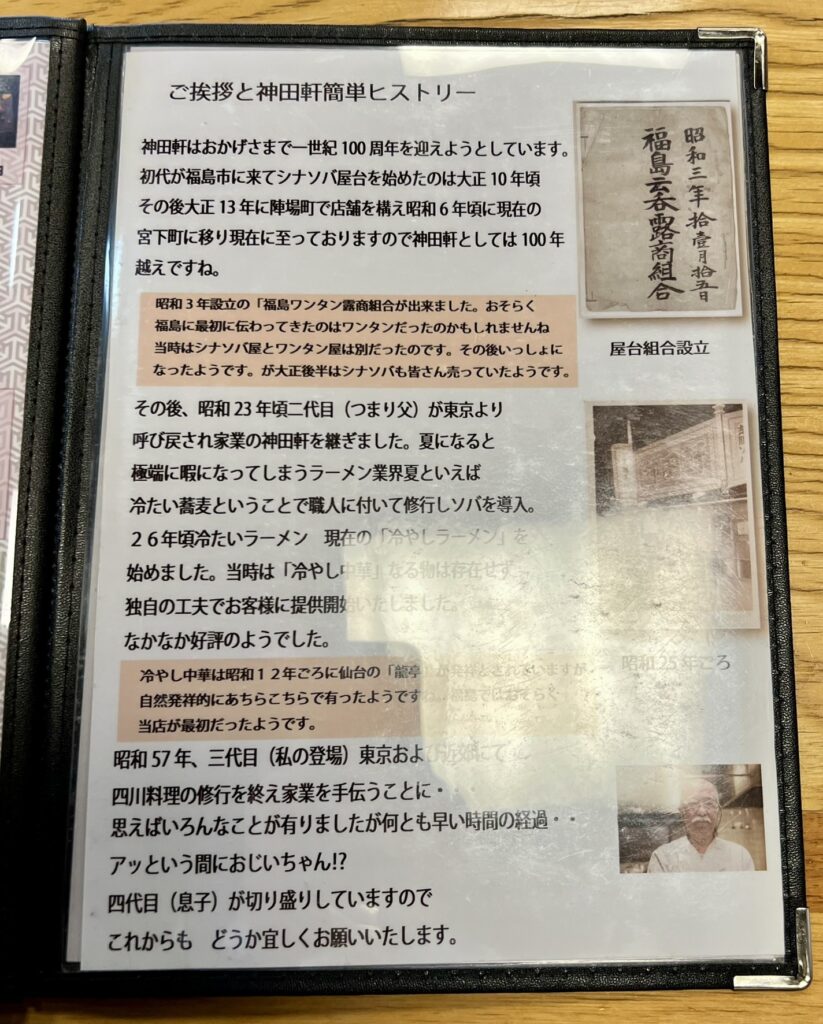 ご挨拶と神田軒簡単ヒストリー
神田軒はおかげさまで一世紀100周年を迎えようとしています。
初代が福島市に来てシナソバ屋台を始めたのは大正10年頃
その後大正13年に陣場町で店舗を構え昭和6年頃に現在の
宮下町に移り現在に至っておりますので神田軒としては100年
越えですね。
昭和3年設立の「福島ワンタン露商組合が出来ました。おそらく
福島に最初に伝わってきたのはワンタンだったのかもしれませんね
当時はシナソバ屋とワンタン屋は別だったのです。その後いっしょに
なったようです。が大正後半はシナソバも皆さん売っていたようです。
昭和三年拾壹月拾五日
福島云呑露商組合
屋台組合設立
その後、昭和23年頃二代目（つまり父）が東京より
呼び戻され家業の神田軒を継ぎました。夏になると
極端に暇になってしまうラーメン業界夏といえば
冷たい蕎麦ということで職人に付いて修行しソバを導入。
２６年頃冷たいラーメン　現在の「冷やしラーメン」を
始めました。当時は「冷やし中華」なる物は存在せず
独自の工夫でお客様に提供開始いたしました。
なかなか好評のようでした。
昭和25年ごろ
冷やし中華は昭和１２年ごろに仙台の「龍亭」が発祥とされていますが
自然発祥的にあちらこちらで有ったようですね。福島ではおそらく
当店が最初だったようです。
昭和57年、三代目（私の登場）東京および にて
四川料理の修行を終え家業を手伝うことに・・・
思えばいろんなことが有りましたが何とも早い時間の経過・・
アッという間におじいちゃん!?
四代目（息子）が切り盛りしていますので
これからも　どうか宜しくお願いいたします。